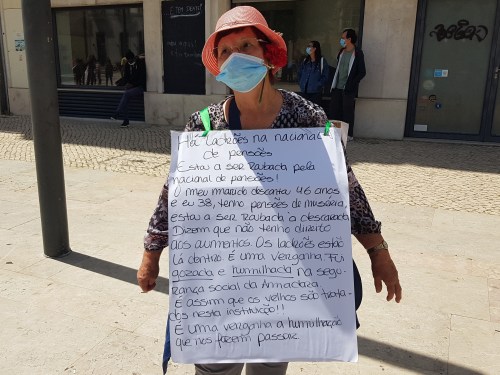 Há Ladrões na nacional
de pensões
Estou a ser Roubada pela
nacional de pensões!
O meu marido descontou 46 anos
e eu 38, tenho pensões de miséria,
estou a ser Roubada à descarada
Dizem que não tenho direito
aos aumentos. Os ladrões estão
lá dentro É uma vergonha. Fui
gozada e humilhada na segu-
rança social da Amadora.
É assim que os velhos são trata-
dos nesta instituição!!
É uma vergonha a humilhação
que nos fazem passar.